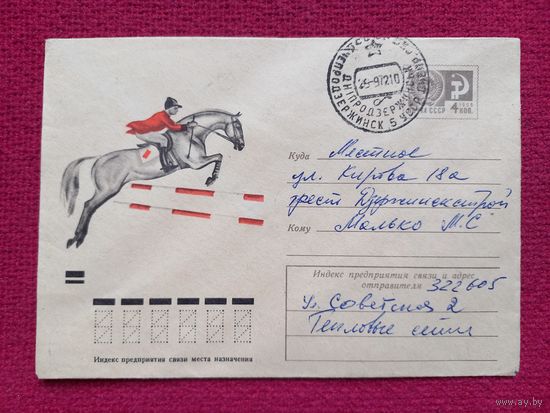 ДНЕПРОДЗЕРЖИНСК 5 УССР
ДНІПРОДЗЕРЖИНСЬК
25-9/7210
1966
4 КОП.
Куда Местное
ул. Кирова 18а
трест Дзержинскстрой
Кому Малько М.С
Индекс предприятия связи и адрес
отправителя 322605
ул Советская 2
Тепловые сети
Индекс предприятия связи места назначения
www.ay.by